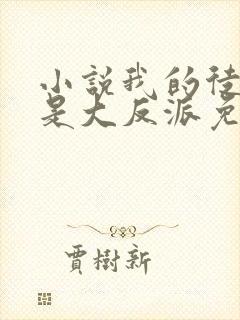 小説我的徒
是大反派免
賈樹新